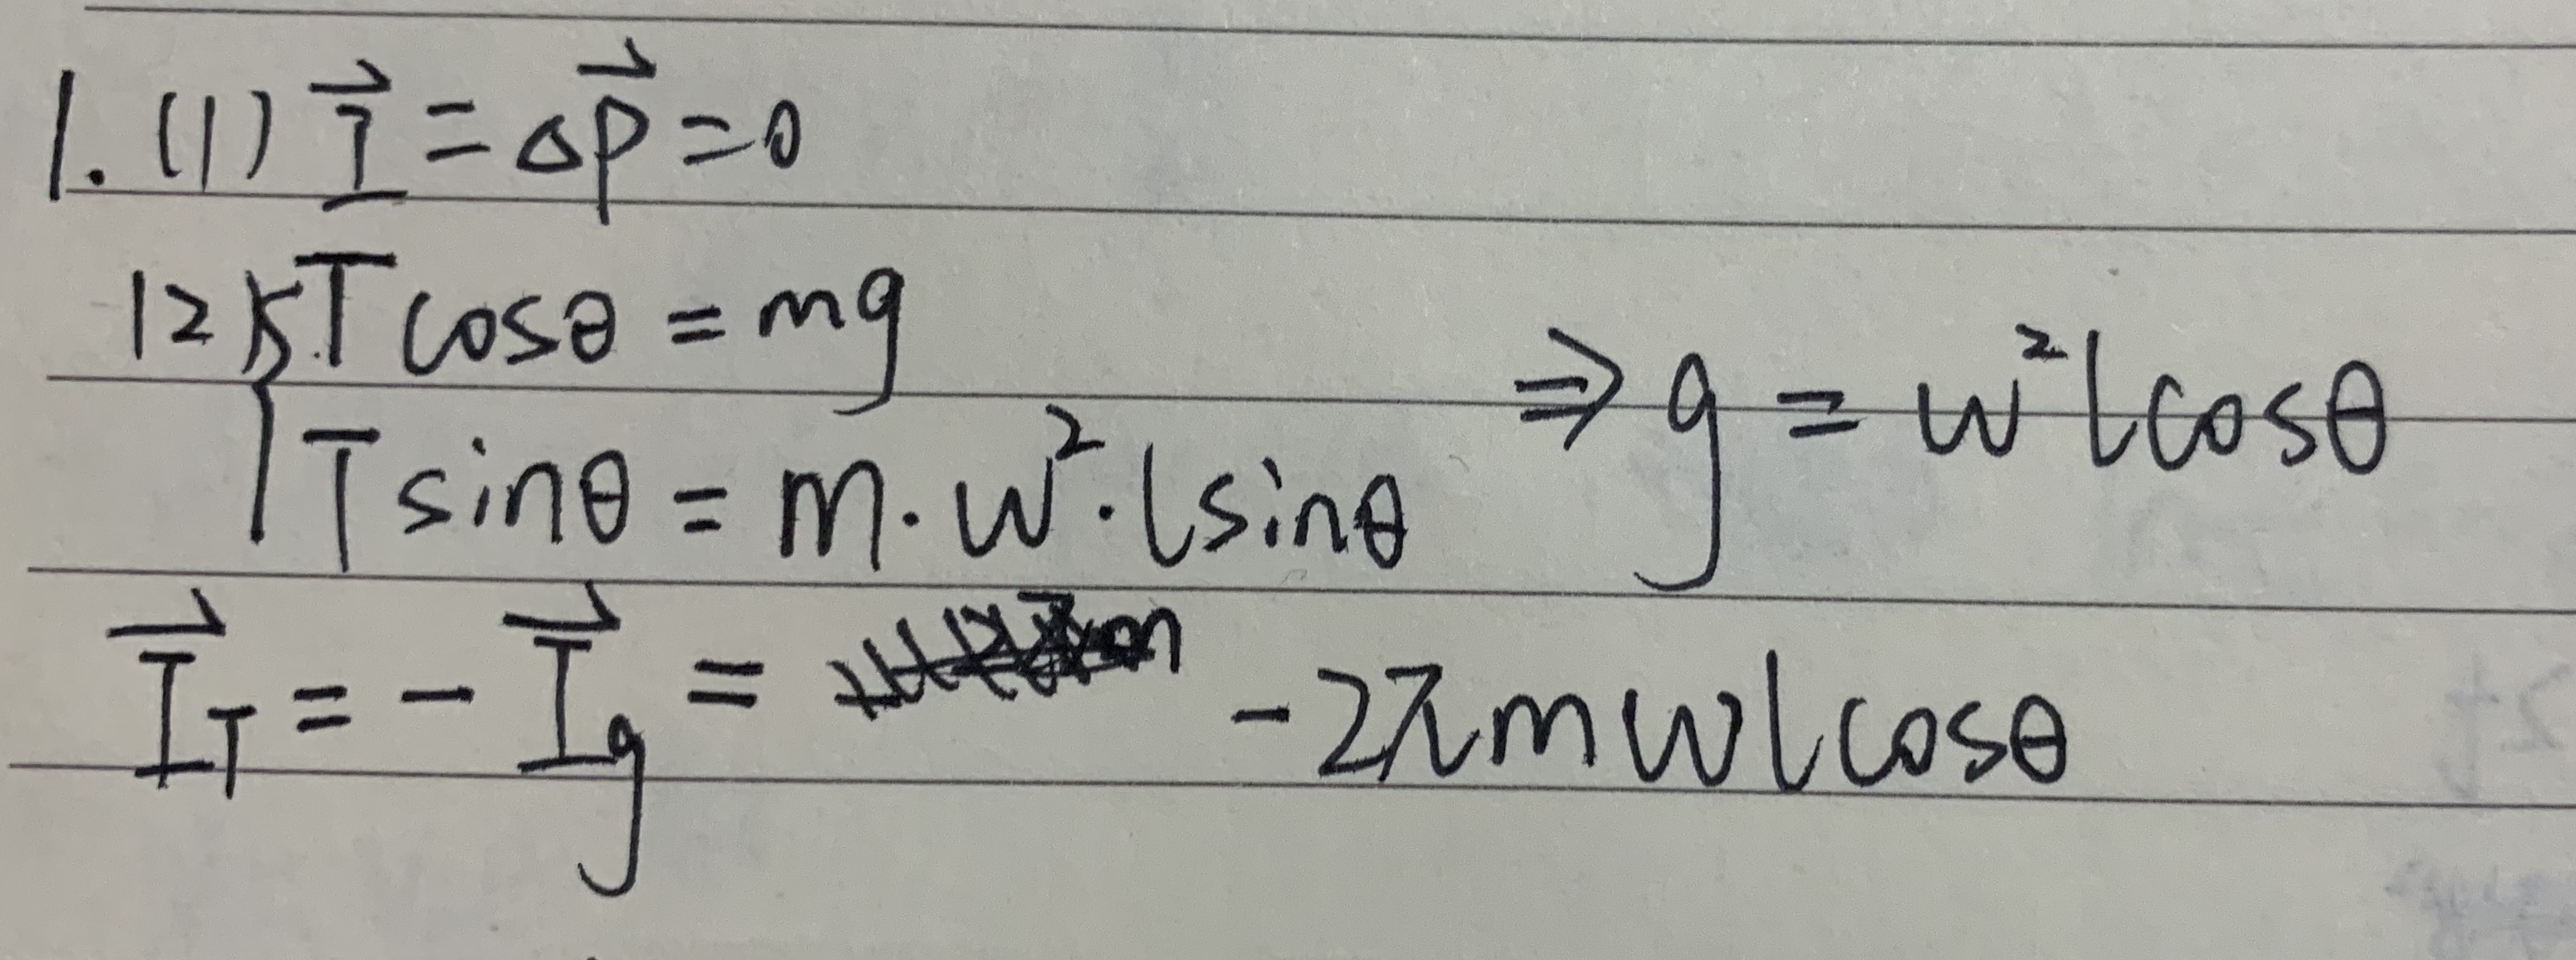 1. (1) \vec{I} = Δ\vec{P} = 0
(2) { T cosθ = mg
T sinθ = m · w² · l sinθ ⇒ g = w² l cosθ
\vec{I}_T = - \vec{I}_g = - 2π m w l cosθ